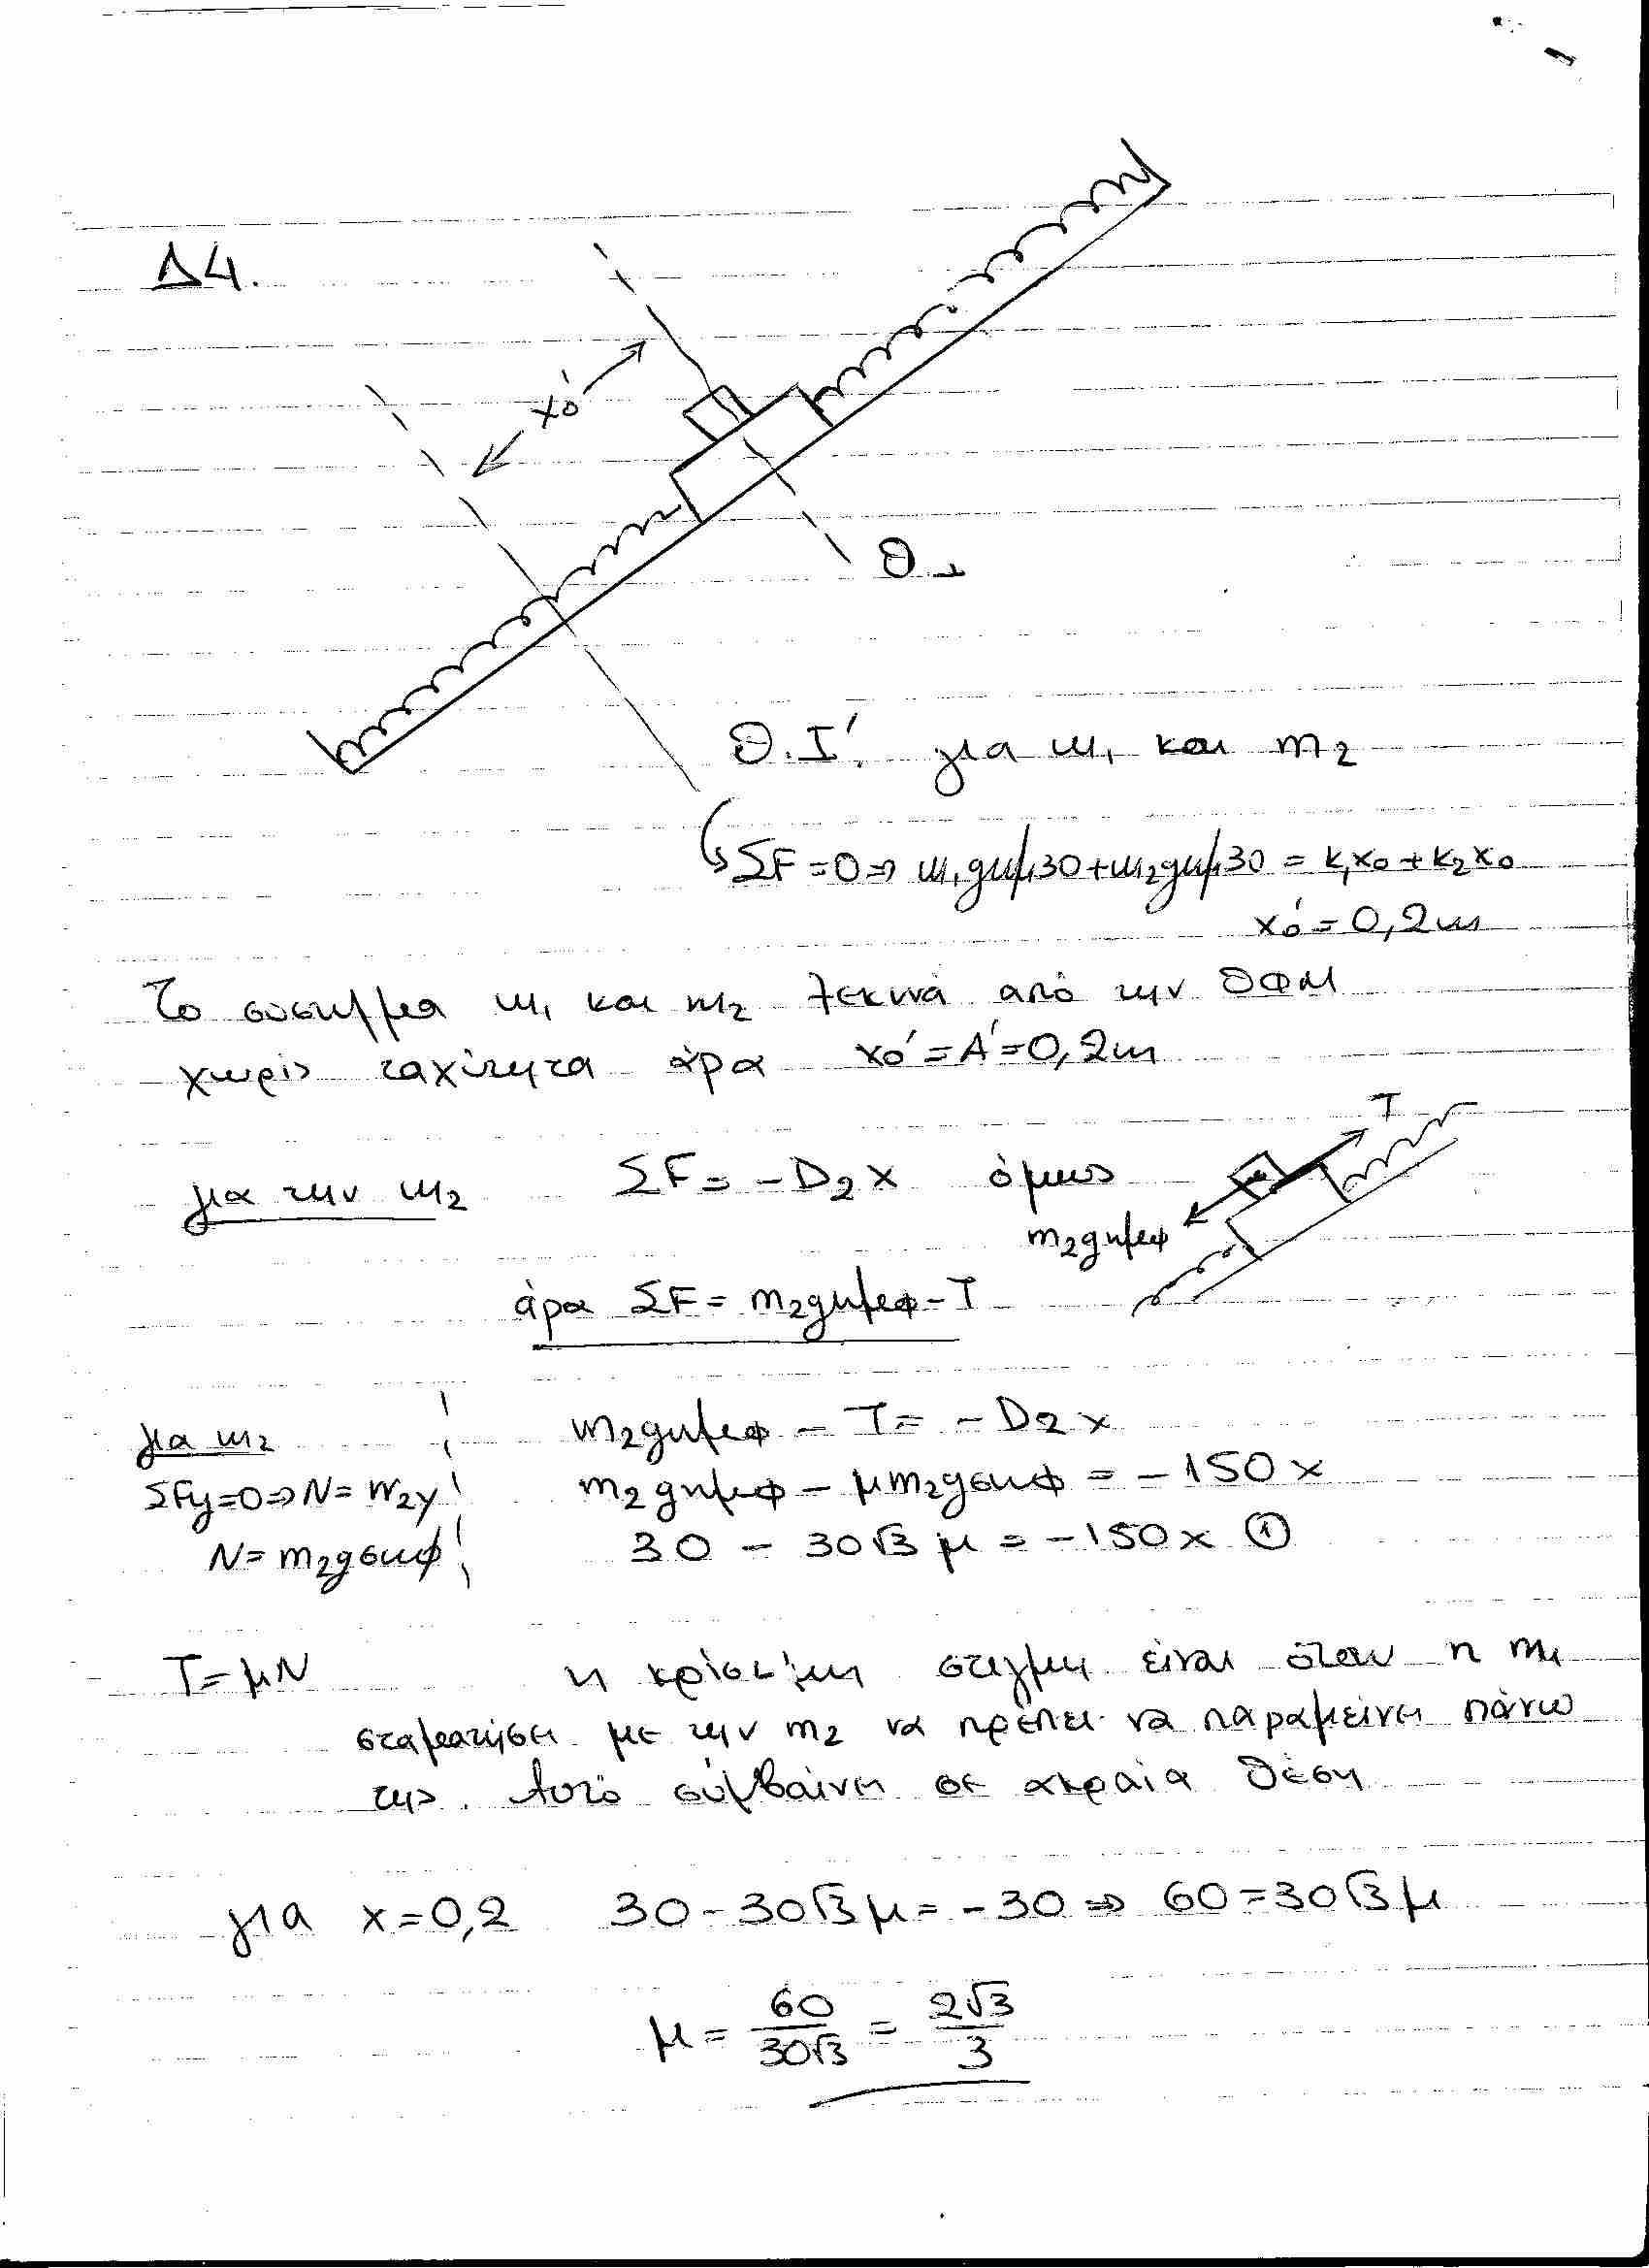 Δ4.
x₀'
Θ.Ι
Θ.Ι'. για m₁ και m₂
ΣF=0 ⇒ m₁gημ30+m₂gημ30 = k₁x₀+k₂x₀
x₀'=0,2m
Το σύστημα m₁ και m₂ ξεκινά από την ΘΦΜ
χωρίς ταχύτητα άρα x₀'=A'=0,2m
T
για την m₂ ΣF= -D₂x όμως
m₂gημφ
άρα ΣF= m₂gημφ-T
για m₂ m₂gημφ - T= -D₂x
ΣFy=0⇒N= W₂y m₂gημφ - μm₂gσυνφ = -150x
N= m₂gσυνφ 30 - 30√3 μ = -150x ①
T=μN η κρίσιμη στιγμή είναι όταν η m₁
σταματήσει με την m₂ να πρέπει να παραμείνει πάνω
της. Αυτό συμβαίνει σε ακραία θέση
για x=0,2 30-30√3μ= -30 ⇒ 60=30√3μ
μ = 60/30√3 = 2√3/3